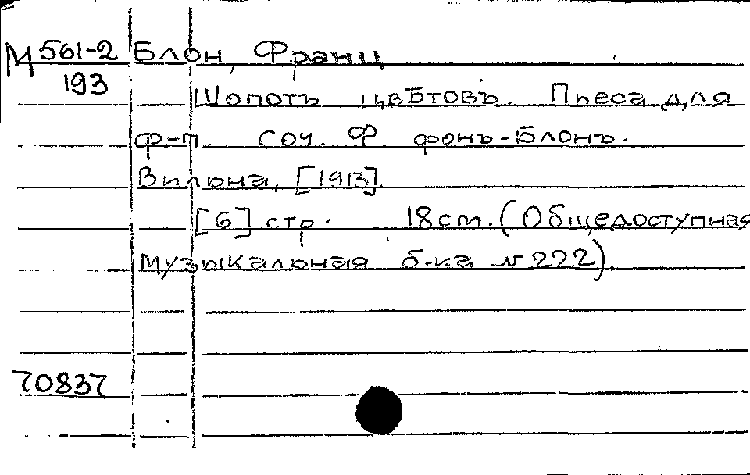 М 561-2 Блон, Франц
193
Шопотъ цвѣтовъ. Пьеса для
ф-п. соч. Ф. фонъ-Блонъ.
Вильна, [1913].
[6] стр. 18 см. (Общедоступная
музыкальная б-ка № 222)
70837